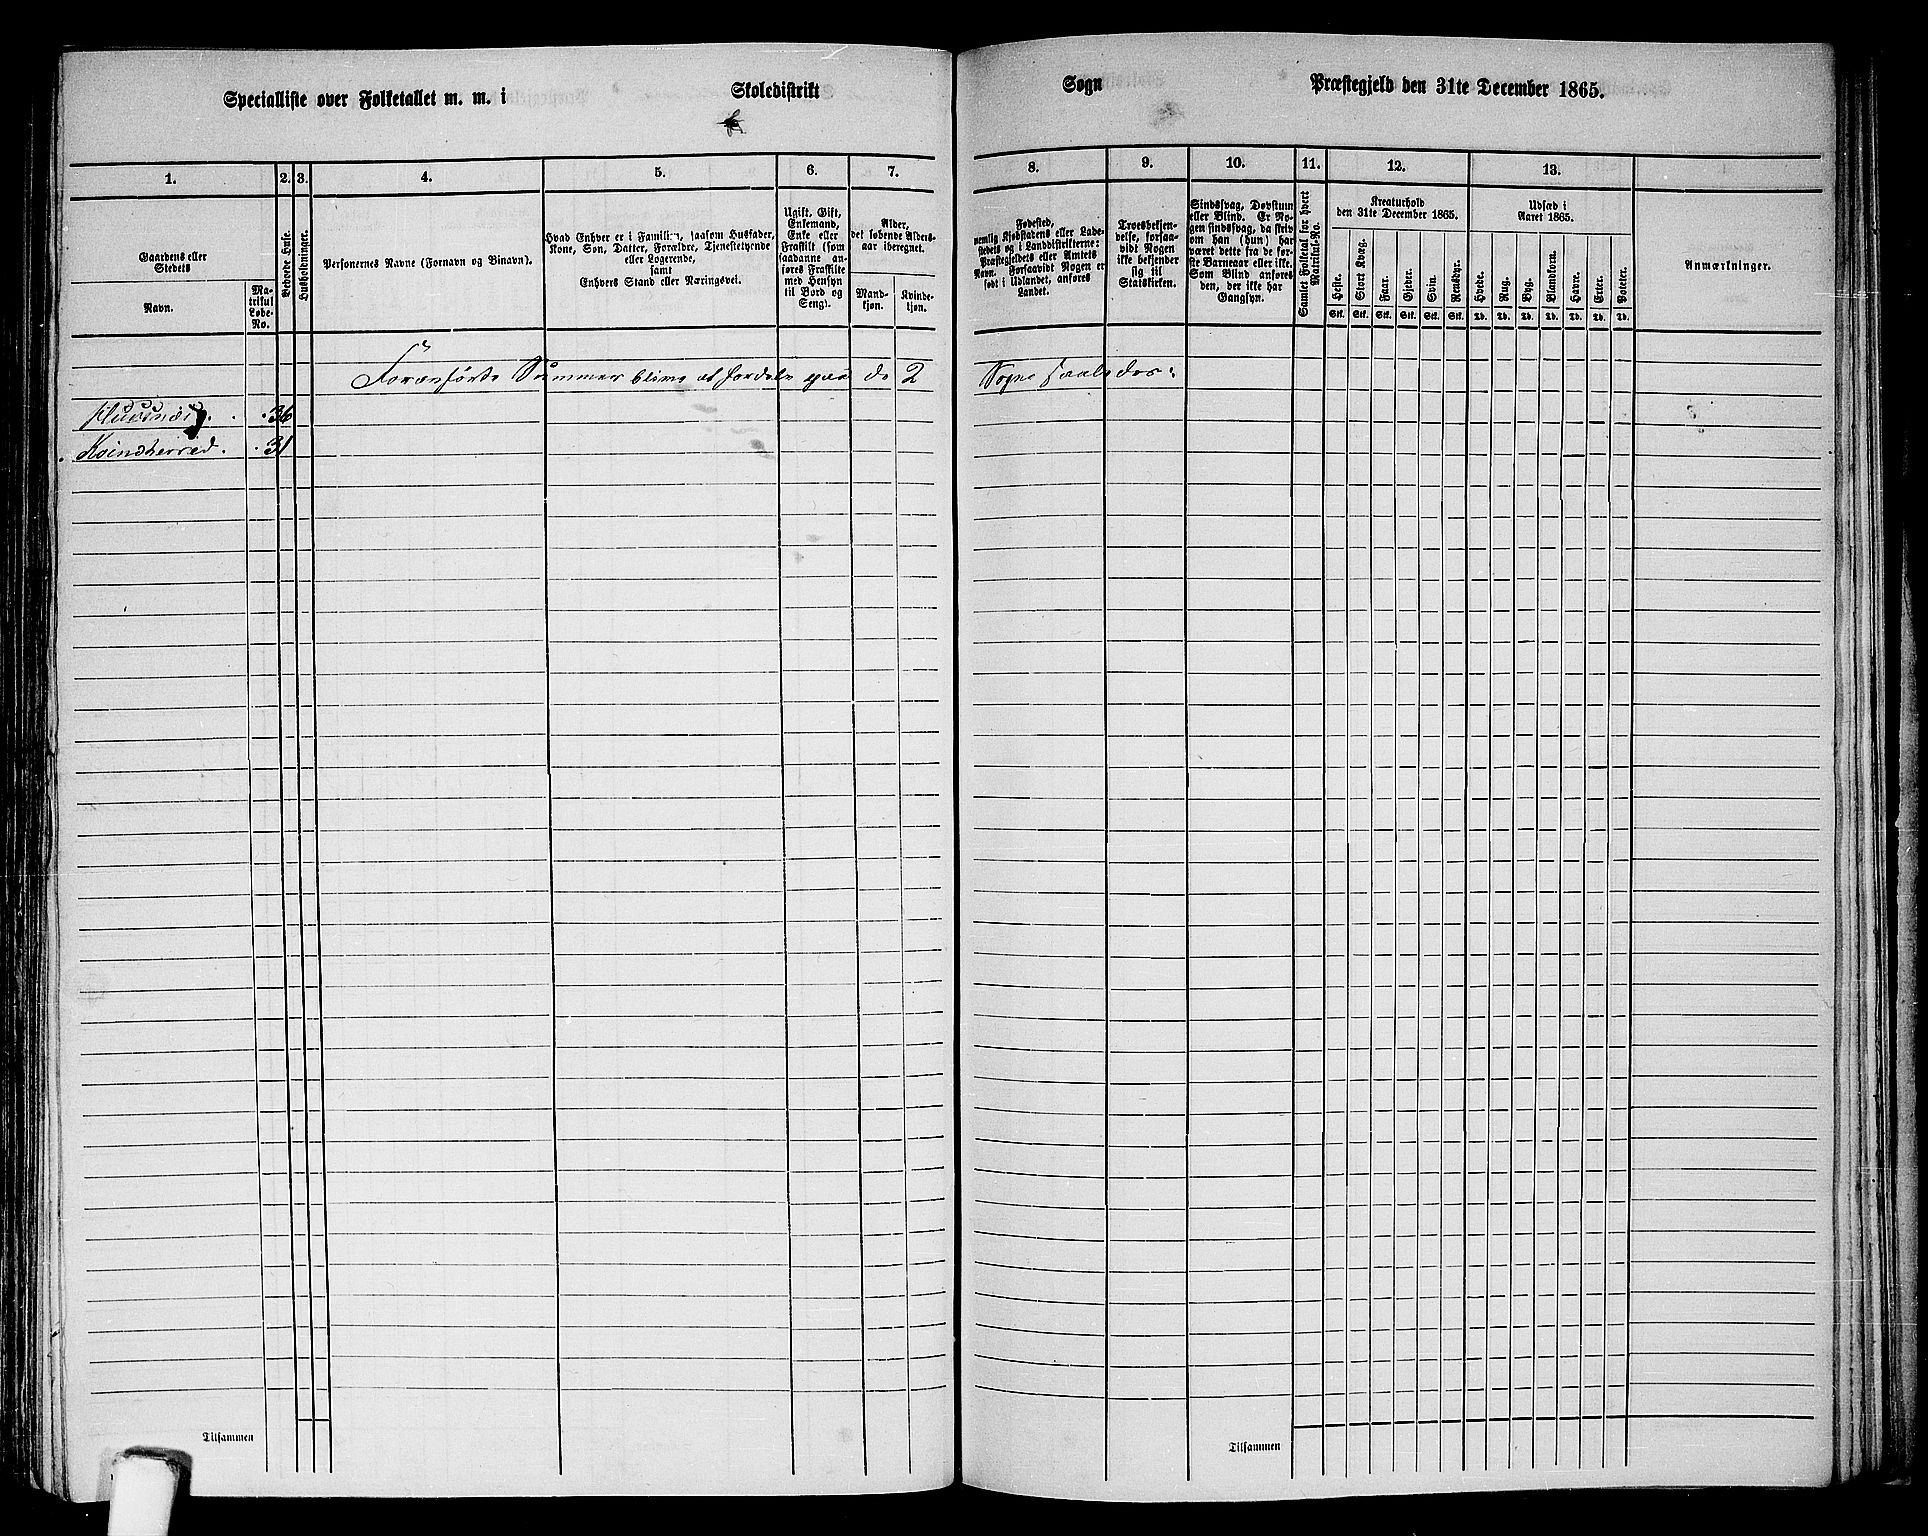 Specialliste over Folketallet m. m. i
Skoledistrikt
Sogn
Præstegjeld den 31te December 1865.
1.
2.
3.
4.
5.
6.
7.
8.
9.
10.
11.
12.
13.
Gaardens eller
Stedets
Navn.
Ma-
trikul
Løbe-
No.
Beboede Huse.
Husholdninger.
Personernes Navne (Fornavn og Binavn).
Hvad Enhver er i Familien, saasom Husfader,
Kone, Søn, Datter, Forældre, Tjenestetyende
eller Logerende,
samt
Enhvers Stand eller Næringsvei.
Ugift, Gift,
Enkemand,
Enke eller
Fraskilt (som
saadanne an-
føres Fraskilte
med Hensyn
til Bord og
Seng).
Alder,
det løbende Alders-
aar iberegnet.
Mand-
kjøn.
Kvinde-
kjøn.
Fødested,
nemlig Kjøbstadens eller Lade-
stedets og i Landdistrikterne:
Præstegjeldets eller Amtets
Navn. Forsaavidt Nogen er
født i Udlandet, anføres
Landet.
Troesbekjen-
delse, forsaa-
vidt Nogen
ikke bekjender
sig til
Statskirken.
Sindssvag, Døvstum
eller Blind. Er No-
gen sindssvag, da skriv
om han (hun) har
været dette fra de før-
ste Barneaar eller ikke.
Som Blind anføres
den, der ikke har
Gangsyn.
Samlet Folketal for hvert
Matrikul-No.
Kreaturhold
den 31te December 1865.
Heste.
Stort Kvæg.
Faar.
Gjeder.
Svin.
Rensdyr.
Stk. Stk. Stk. Stk. Stk. Stk.
Udsæd i
Aaret 1865.
Hvede.
Rug.
Byg.
Blandkorn.
Havre.
Erter.
Poteter.
Td. Td. Td. Td. Td. Td. Td.
Anmærkninger.
Foranførte Summer blive at fordele paa de 2 Sogne saaledes:
36
Kvindherred. 31
Tilsammen
Tilsammen